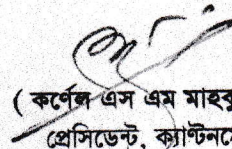 ( কর্ণেল এস এম মাহবু
প্রেসিডেন্ট, ক্যান্টনমে